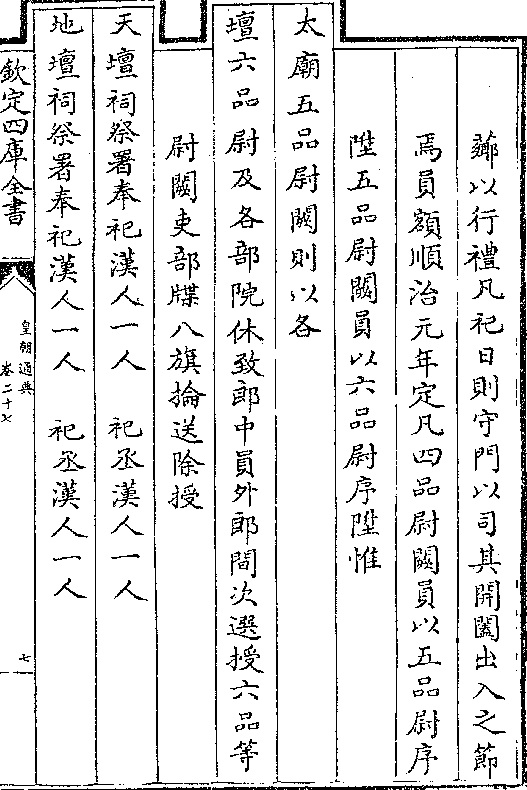 薌以行禮凡祀日則守門以司其開闔出入之節
焉員額順治元年定凡四品尉闕員以五品尉序
陞五品尉闕員以六品尉序陞惟
太廟五品尉闕則以各
壇六品尉及各部院休致郎中員外郎間次選授六品等
尉闕吏部牒八旗掄送除授
天壇祠祭署奉祀漢人一人 祀丞漢人一人
地壇祠祭署奉祀漢人一人 祀丞漢人一人
欽定四庫全書
皇朝通典
卷二十七
七